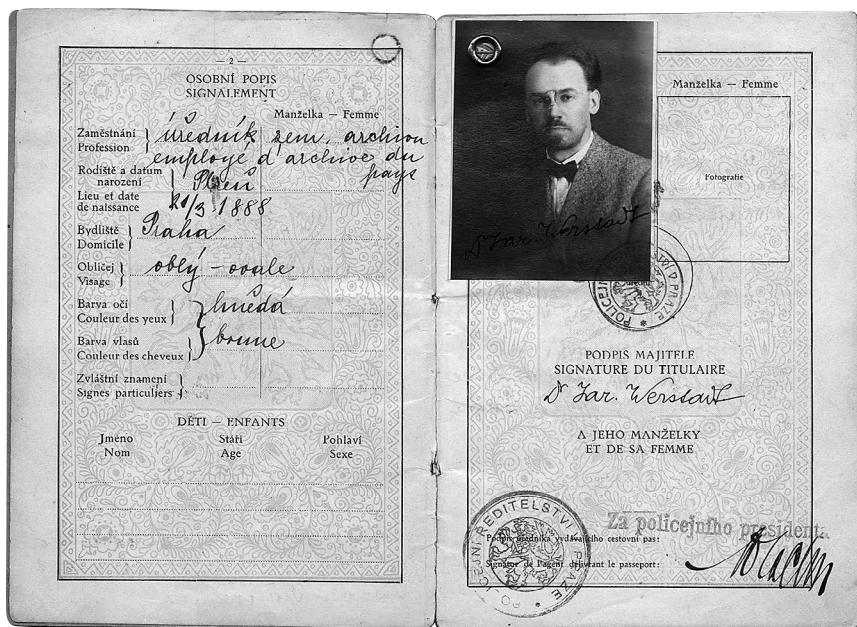 — 2 —
OSOBNÍ POPIS
SIGNALEMENT
Manželka — Femme
Zaměstnání
Profession
úředník zem. archivu
employé d'archive du
pays
Rodiště a datum
narození
Lieu et date
de naissance
Plzeň
21/3 1888
Bydliště
Domicile
Praha
Obličej
Visage
oblý - ovale
Barva očí
Couleur des yeux
hnědá
Barva vlasů
Couleur des cheveux
brune
Zvláštní znamení
Signes particuljers
DĚTI — ENFANTS
Jméno Stáří Pohlaví
Nom Age Sexe
Manželka — Femme
Fotografie
Dr Jar. Werstadt
PODPIS MAJITELE
SIGNATURE DU TITULAIRE
Dr Jar. Werstadt
A JEHO MANŽELKY
ET DE SA FEMME
Za policejního presidenta
Podpis úředníka vydávajícího cestovní pas:
Signature de l'agent délivrant le passeport:
POLICEJNÍ ŘEDITELSTVÍ V PRAZE